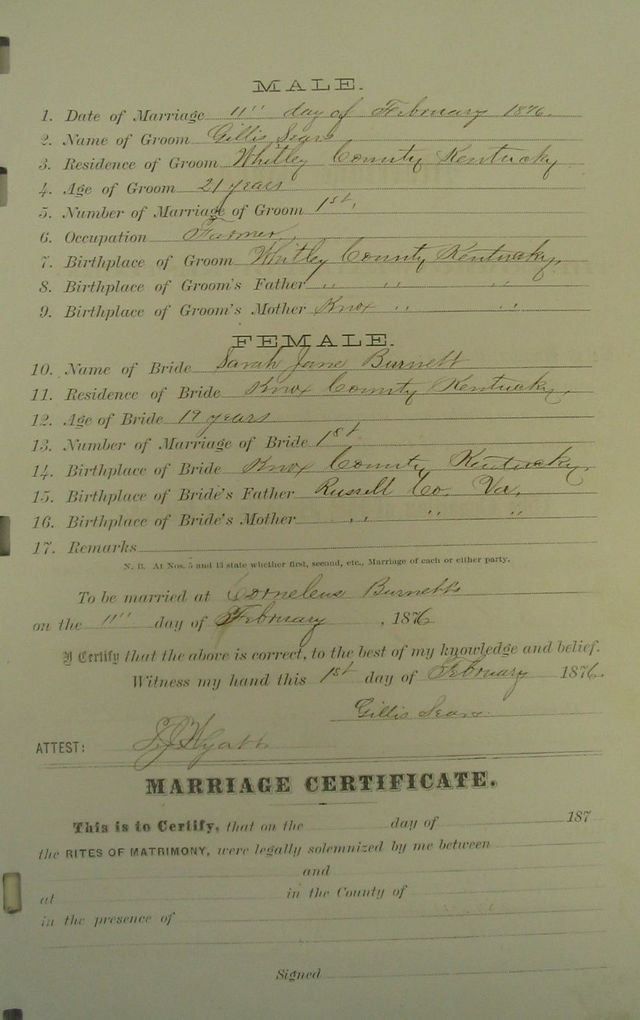 MALE.
1. Date of Marriage 11" day of February 1876.
2. Name of Groom Gillis Sears
3. Residence of Groom Whitley County Kentucky
4. Age of Groom 21 years
5. Number of Marriage of Groom 1st.
6. Occupation Farmer
7. Birthplace of Groom Whitley County Kentucky,
8. Birthplace of Groom's Father " " "
9. Birthplace of Groom's Mother Knox " "
FEMALE.
10. Name of Bride Sarah Jane Burnett
11. Residence of Bride Knox County Kentucky
12. Age of Bride 19 years
13. Number of Marriage of Bride 1st
14. Birthplace of Bride Knox County Kentucky,
15. Birthplace of Bride's Father Russell Co. Va,
16. Birthplace of Bride's Mother " " "
17. Remarks
N. B. At Nos. 5 and 13 state whether first, second, etc., Marriage of each or either party.
To be married at Cornelius Burnetts
on the 11" day of February , 1876
I Certify that the above is correct, to the best of my knowledge and belief.
Witness my hand this 1st day of February 1876.
Gillis Sears.
ATTEST: Hyatt
MARRIAGE CERTIFICATE.
This is to Certify, that on the day of 187
the RITES OF MATRIMONY, were legally solemnized by me between
and
at in the County of
in the presence of
Signed